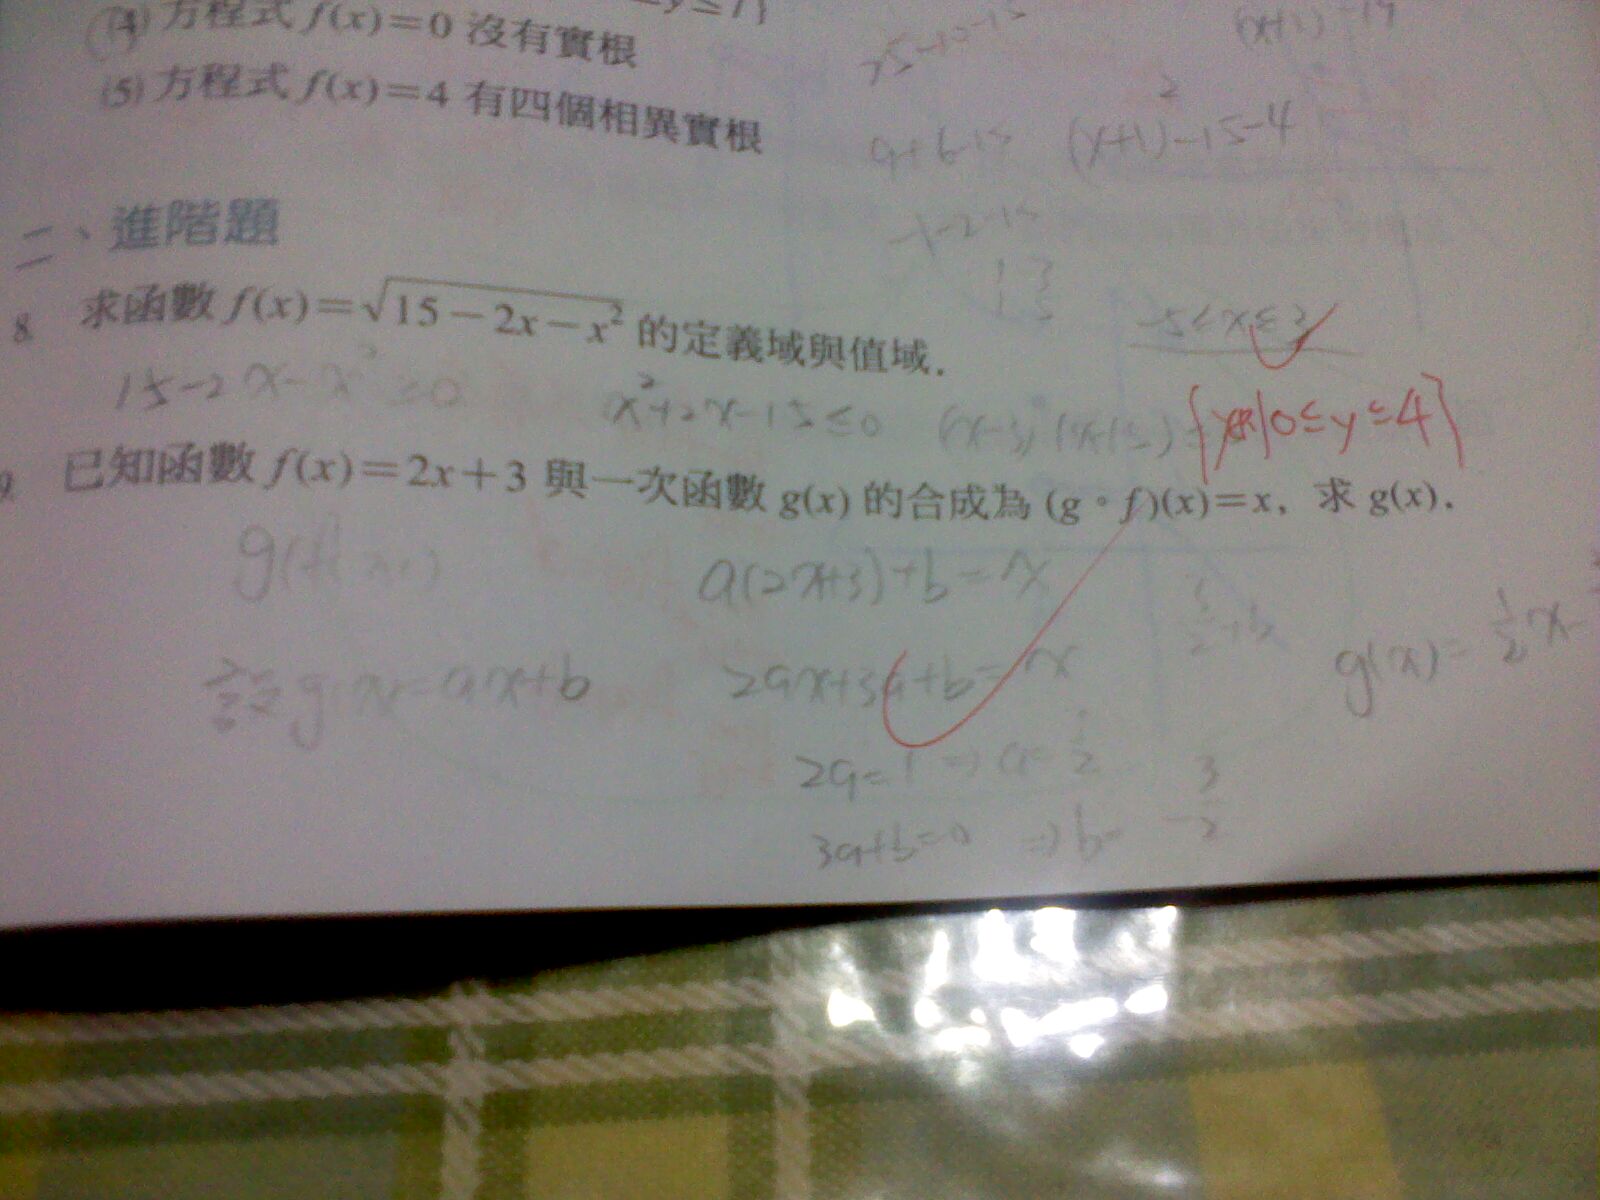 (4) 方程式 f(x)=0 沒有實根
(5) 方程式 f(x)=4 有四個相異實根
(x+1)²-15-4
二、進階題
8. 求函數 f(x)=√(15-2x-x²) 的定義域與值域.
-5≤x≤3
15-2x-x²≥0
x²+2x-15≤0
{y∈R|0≤y≤4}
9. 已知函數 f(x)=2x+3 與一次函數 g(x) 的合成為 (g∘f)(x)=x, 求 g(x).
g(f(x))
a(2x+3)+b=x
設g(x)=ax+b
2ax+3a+b=x
g(x)=1/2x-
2a=1⇒a=1/2
3a+b=0 ⇒b=-3/2